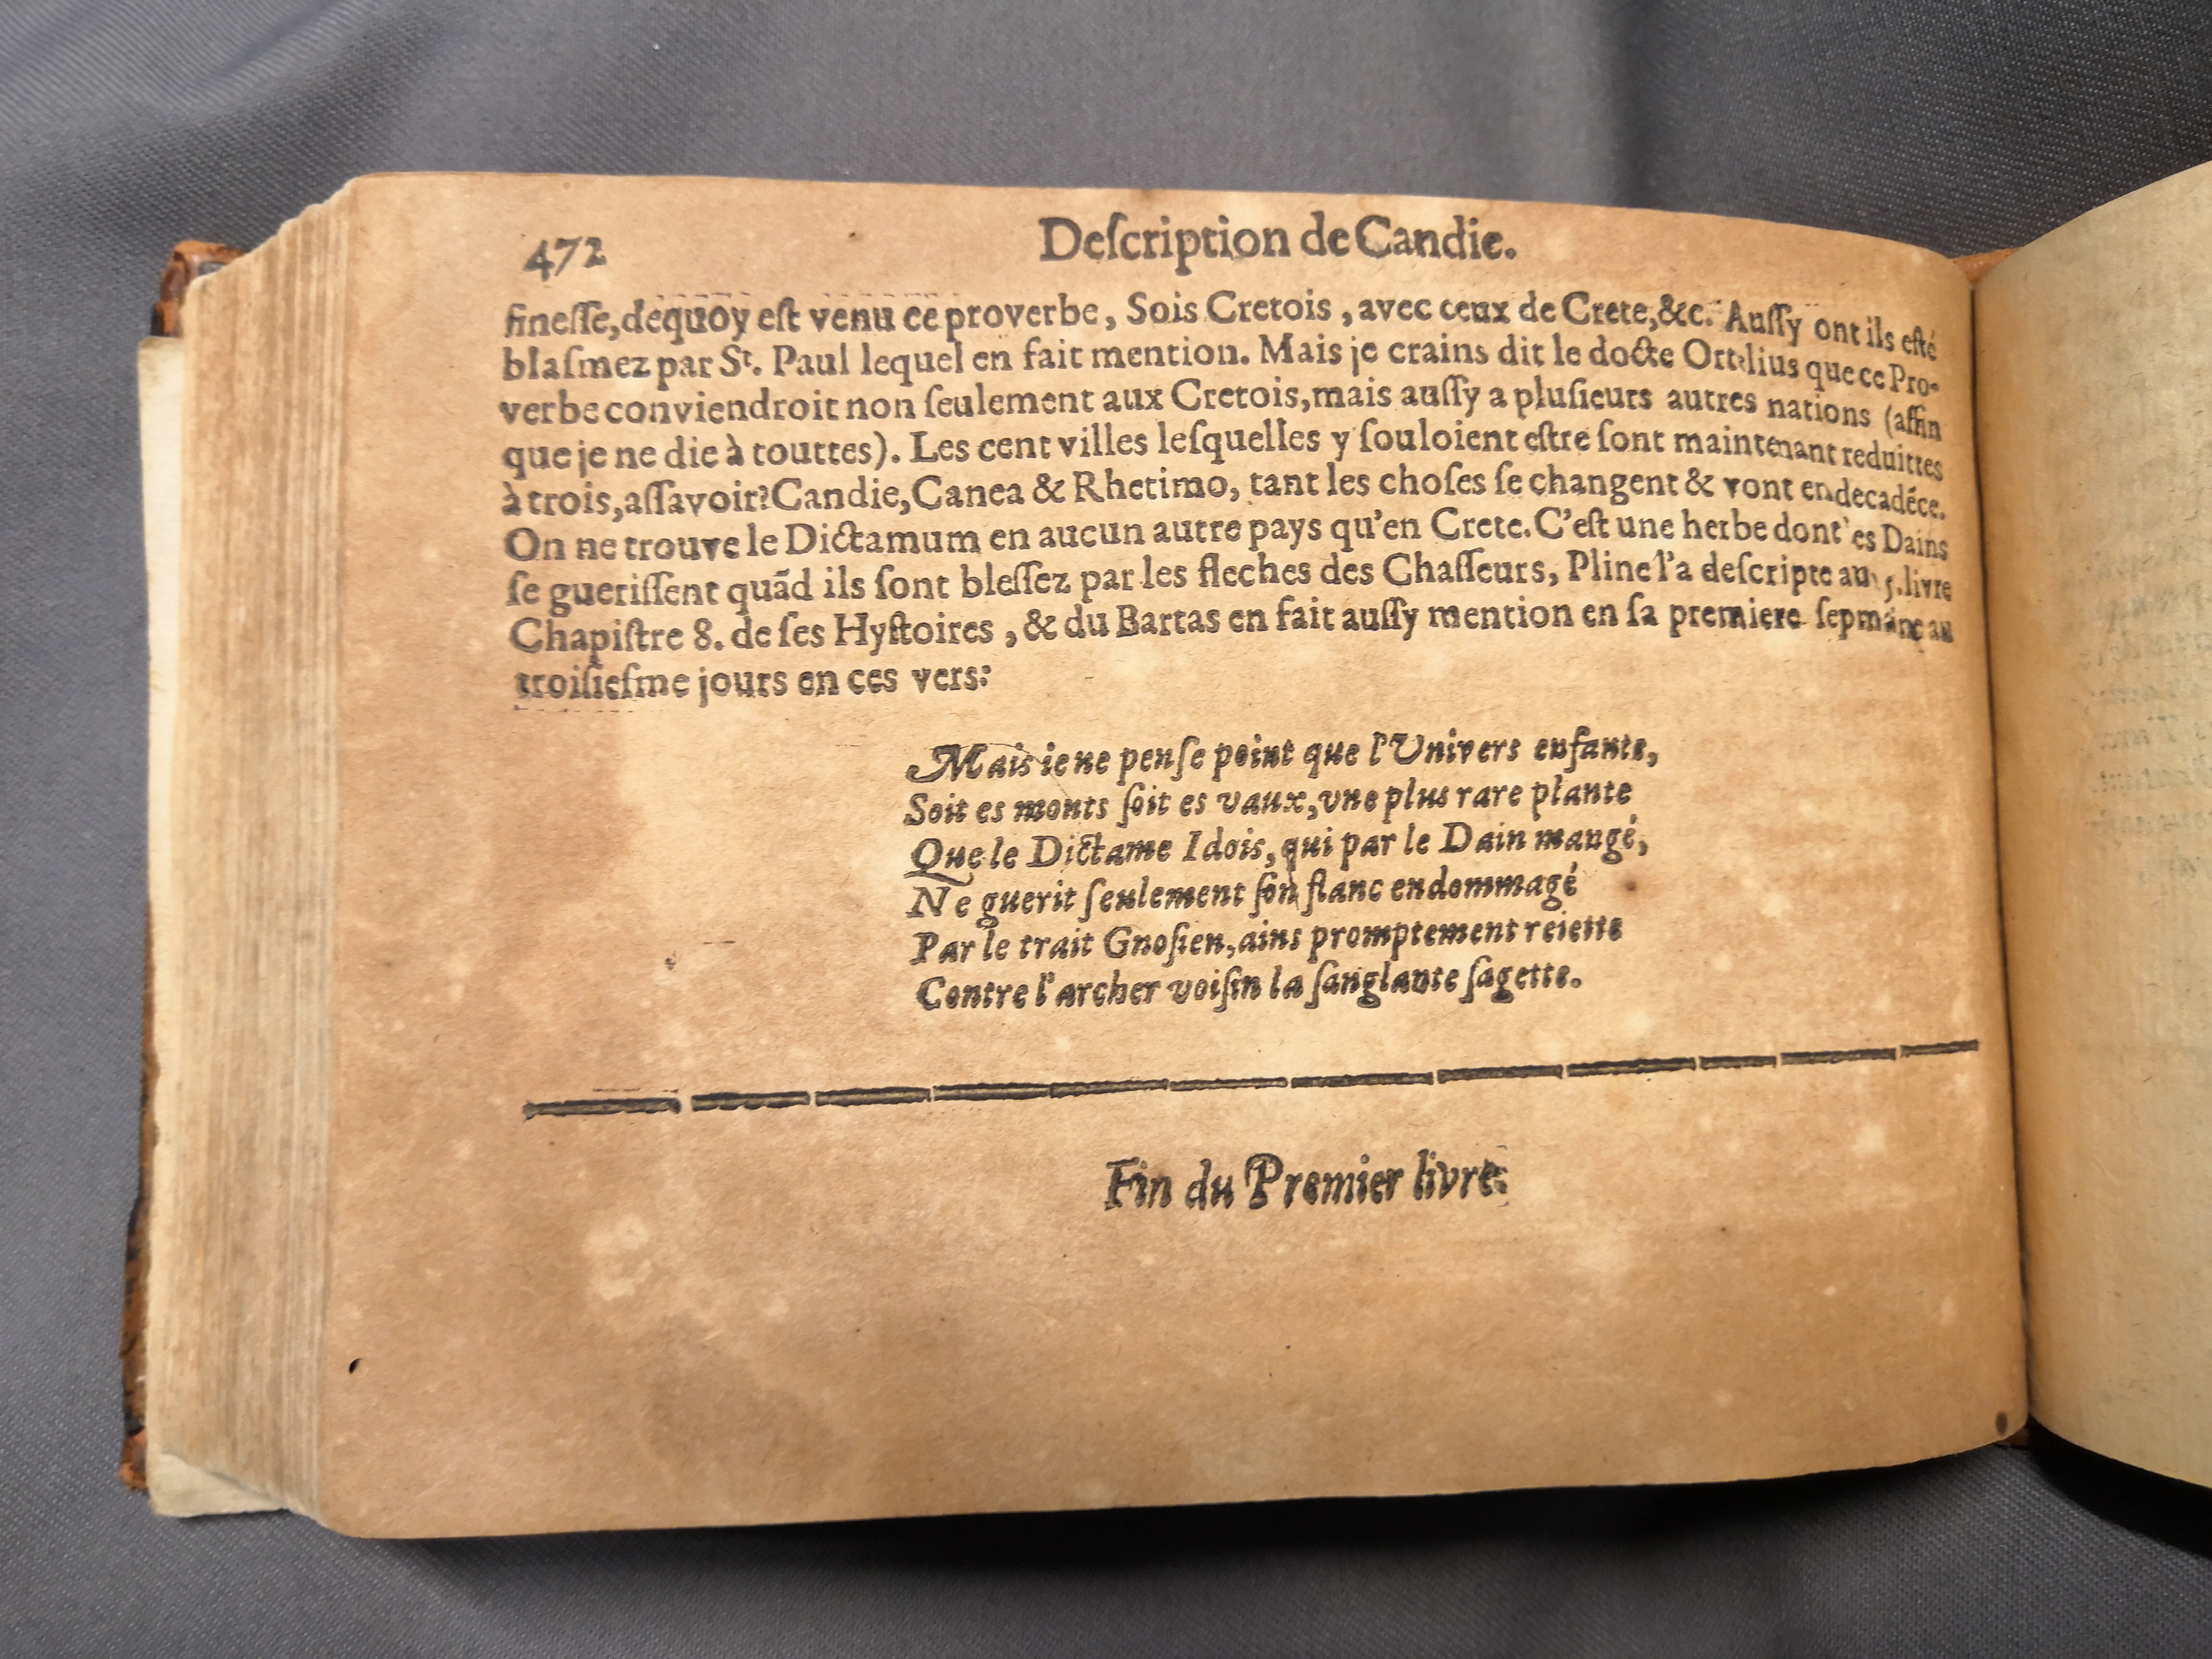 472
Deſcription de Candie.
fineſſe, dequoy eſt venu ce proverbe, Sois Cretois, avec ceux de Crete, &c. Auſſy ont ils eſté
blaſmez par St. Paul lequel en fait mention. Mais je crains dit le docte Ortelius que ce Pro-
verbe conviendroit non ſeulement aux Cretois, mais auſſy a pluſieurs autres nations (affin
que je ne die à touttes). Les cent villes leſquelles y ſouloient eſtre ſont maintenant reduittes
à trois, aſſavoir? Candie, Canea & Rhetimo, tant les choſes ſe changent & vont en decadẽce.
On ne trouve le Dictamum en aucun autre pays qu'en Crete. C'eſt une herbe dont es Dains
ſe gueriſſent quãd ils ſont bleſſez par les fleches des Chaſſeurs, Pline l'a deſcripte au 5. livre
Chapiſtre 8. de ſes Hyſtoires, & du Bartas en fait auſſy mention en ſa premiere ſepmane au
troiſieſme jours en ces vers:
Mais ie ne penſe point que l'Univers enfante,
Soit es monts ſoit es vaux, vne plus rare plante
Que le Dictame Idois, qui par le Dain mangé,
Ne guerit ſeulement ſon flanc endommagé
Par le trait Gnoſien, ains promptement reiette
Contre l'archer voiſin la ſanglante ſagette.
Fin du Premier livre.